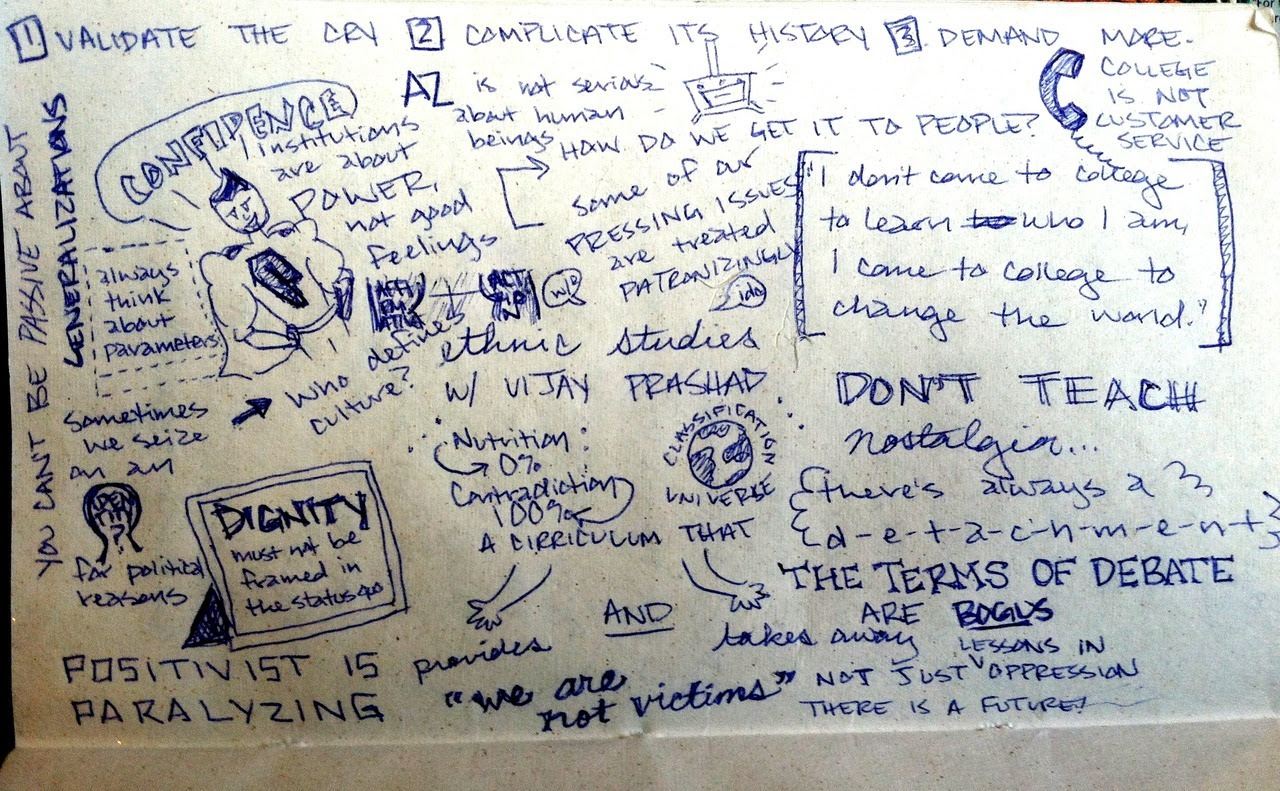 1 VALIDATE THE CRY 2 COMPLICATE ITS HISTORY 3 DEMAND MORE.
COLLEGE
IS NOT
CUSTOMER
SERVICE
YOU CAN'T BE PASSIVE ABOUT
GENERALIZATIONS
CONFIDENCE
institutions
are about
POWER,
not good
feelings
AZ is not serious
about human
beings
HOW DO WE GET IT TO PEOPLE?
some of our
PRESSING ISSUES
are treated
PATRONIZINGLY
"I don't come to college
to learn who I am,
I come to college to
change the world."
always
think
about
parameters
who defines
culture?
ethnic studies
W/ VIJAY PRASHAD
sometimes
we seize
on an
IDENTITY?
for political
reasons
DIGNITY
must not be
framed in
the status quo
Nutrition:
0%
Contradiction
100%
CLASSIFICATION
UNIVERSE
A CIRRICULUM THAT
provides
AND
takes away
"we are
not victims"
DON'T TEACH
nostalgia...
{there's always a }
{d-e-t-a-c-h-m-e-n-t}
THE TERMS OF DEBATE
ARE BOGUS
LESSONS IN
NOT JUST OPPRESSION
THERE IS A FUTURE!
POSITIVIST IS
PARALYZING